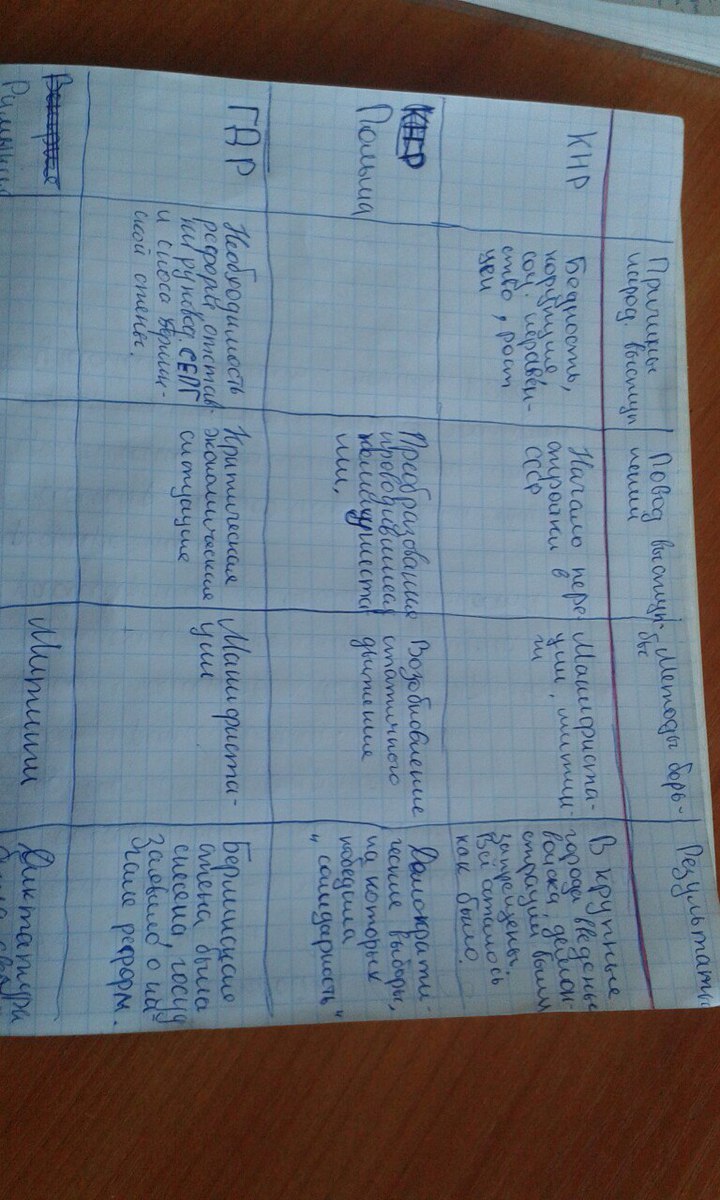 Причины
народ. выступ
Повод выступ-
лений
Методы борь-
бы
Результаты
КНР
Бедность,
корупция,
соц. неравен-
ство, рост
цен
Начало пере-
стройки в
СССР
Манифиста-
ции, митин-
ги
В крупные
города введены
войска, демон-
страции были
запрещены.
Всё осталось
как было.
Польша
Преобразования
проводившиеся
коммуниста
ми,
Возобновление
статичного
движения
Демократи-
ческие выборы,
на которых
победила
"солидарность"
ГДР
Необходимость
реформ, отстав-
ки руковод. СЕПГ
и сноса Берлин-
ской стены.
Критическая
экономическая
ситуация
Манифиста-
ции
Берлинская
стена была
снесена, госуд
заявило о на-
чале реформ.
Румыния
Митинги
Диктатура
была